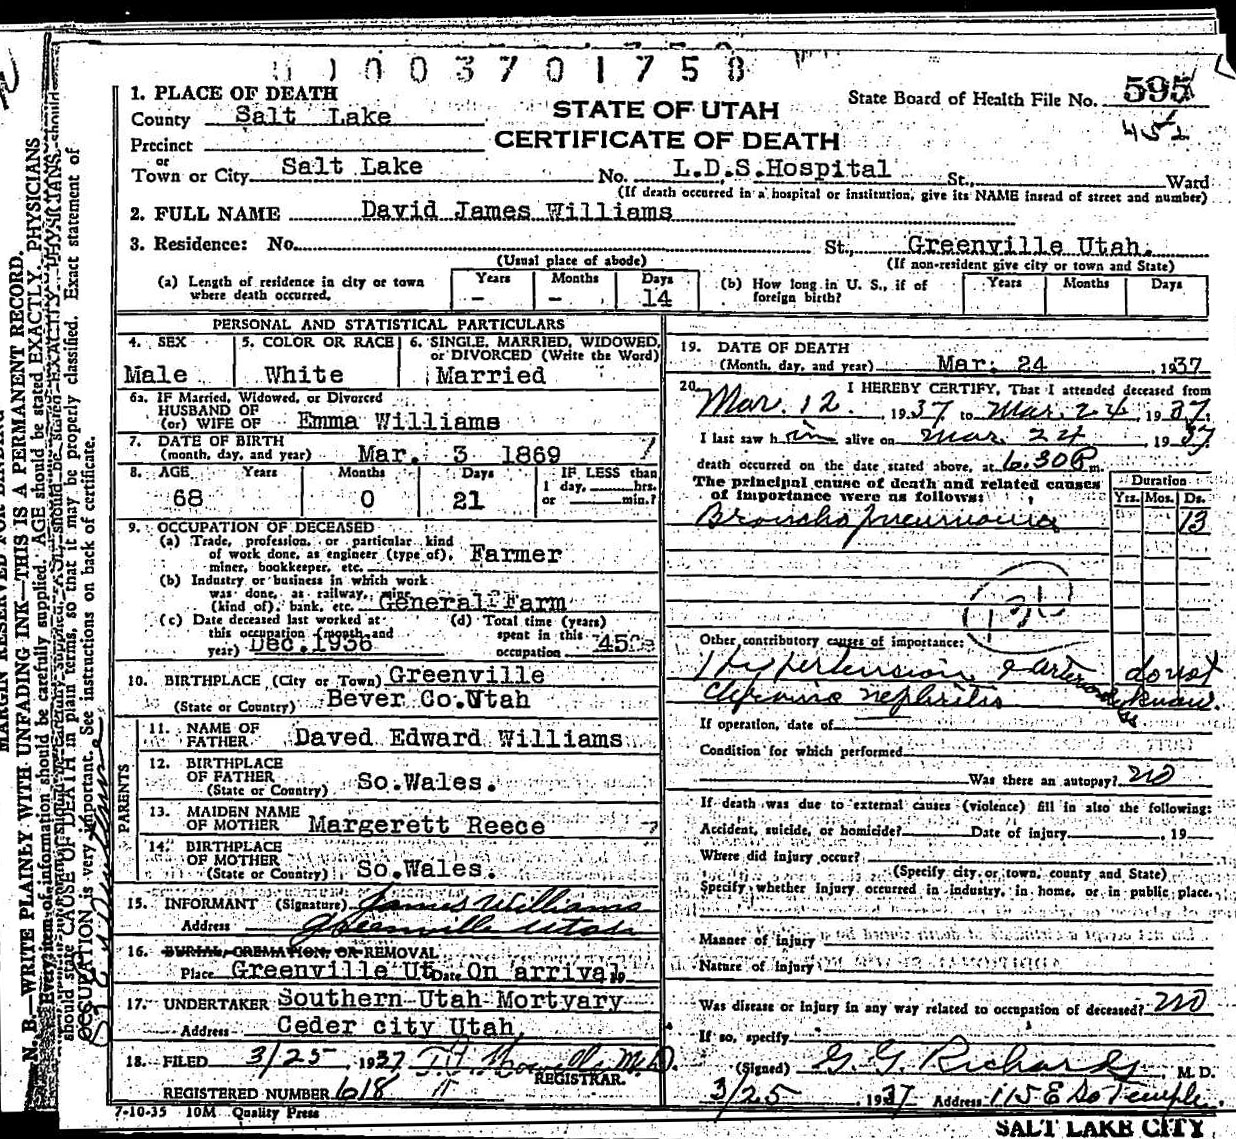 0100370175 8
1. PLACE OF DEATH
County Salt Lake
STATE OF UTAH
CERTIFICATE OF DEATH
State Board of Health File No. 595
452
Precinct
or
Town or City Salt Lake No. L.D.S.Hospital St., Ward
(If death occurred in a hospital or institution, give its NAME insead of street and number)
2. FULL NAME David James Williams
3. Residence: No. St., Greenville Utah.
(Usual place of abode) (If non-resident give city or town and State)
(a) Length of residence in city or town where death occurred. Years - Months - Days 14
(b) How long in U. S., if of foreign birth? Years Months Days
PERSONAL AND STATISTICAL PARTICULARS
4. SEX Male
5. COLOR OR RACE White
6. SINGLE, MARRIED, WIDOWED, or DIVORCED (Write the Word) Married
6a. IF Married, Widowed, or Divorced
HUSBAND OF
(or) WIFE OF Emma Williams
7. DATE OF BIRTH
(month, day, and year) Mar. 3 1869
8. AGE Years 68 Months 0 Days 21 IF LESS than 1 day, hrs. or min.?
9. OCCUPATION OF DECEASED
(a) Trade, profession, or particular kind
of work done, as engineer (type of), Farmer
miner, bookkeeper, etc.
(b) Industry or business in which work
was done, as railway, mine
(kind of), bank, etc. General Farm
(c) Date deceased last worked at
this occupation (month and
year) Dec. 1936
(d) Total time (years)
spent in this
occupation 45
10. BIRTHPLACE (City or Town) Greenville
(State or Country) Bever Co.Utah
PARENTS
11. NAME OF
FATHER Daved Edward Williams
12. BIRTHPLACE
OF FATHER
(State or Country) So.Wales.
13. MAIDEN NAME
OF MOTHER Margerett Reece
14. BIRTHPLACE
OF MOTHER
(State or Country) So.Wales.
15. INFORMANT (Signature) James Williams
Address Greenville Utah
16. BURIAL, CREMATION, OR REMOVAL
Place Greenville Ut Date On arrival 19
17. UNDERTAKER Southern Utah Mortyary
Address Ceder city Utah.
18. FILED 3/25 1937 M.D.
REGISTRAR.
REGISTERED NUMBER 618
7-10-35 10M Quality Press
19. DATE OF DEATH
(Month, day, and year) Mar. 24 1937
20. I HEREBY CERTIFY, That I attended deceased from
Mar. 12, 1937 to Mar. 24 1937.
I last saw him alive on Mar. 24 1937
death occurred on the date stated above, at 6:30P m.
The principal cause of death and related causes
of importance were as follows:
Duration
Yrs. Mos. Ds.
Bronchopneumonia 13
Other contributory causes of importance:
Hypertension & arteriosclerosis do not
chronic nephritis know.
If operation, date of
Condition for which performed
Was there an autopsy? no
If death was due to external causes (violence) fill in also the following:
Accident, suicide, or homicide? Date of injury , 19
Where did injury occur?
(Specify city or town, county and State)
Specify whether injury occurred in industry, in home, or in public place.
Manner of injury
Nature of injury
Was disease or injury in any way related to occupation of deceased? no
If so, specify
(Signed) G. G. Richards, M. D.
3/25 1937 Address 115 E So Temple,
SALT LAKE CITY
MARGIN RESERVED FOR BINDING
N. B.—WRITE PLAINLY WITH UNFADING INK—THIS IS A PERMANENT RECORD.
Every item of information should be carefully supplied. AGE should be stated EXACTLY. PHYSICIANS
should state CAUSE OF DEATH in plain terms, so that it may be properly classified. Exact statement of
OCCUPATION is very important. See instructions on back of certificate.